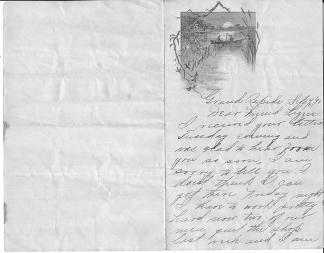 Grand Rapids Sept
Dear Friend
I received your letter
Tuesday evening and
was glad to hear from
you so soon, I am
sorry to tell you I
dont think I can
get there Friday night
I have to work pretty
hard now two of our
men quit the shop
last week and I am